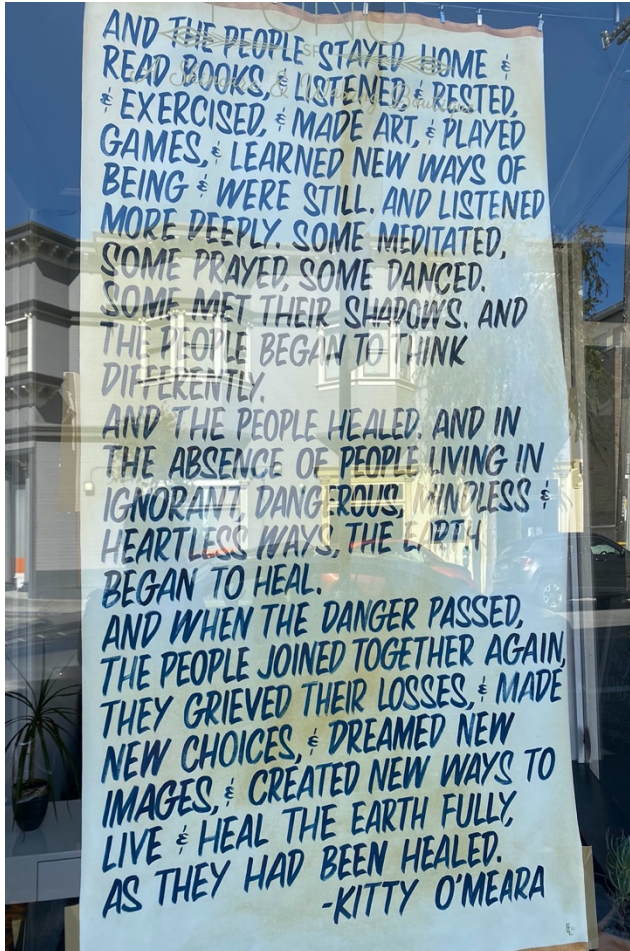 AND THE PEOPLE STAYED HOME &
READ BOOKS, & LISTENED, & RESTED,
& EXERCISED, & MADE ART, & PLAYED
GAMES, & LEARNED NEW WAYS OF
BEING & WERE STILL. AND LISTENED
MORE DEEPLY. SOME MEDITATED,
SOME PRAYED, SOME DANCED.
SOME MET THEIR SHADOWS. AND
THE PEOPLE BEGAN TO THINK
DIFFERENTLY.
AND THE PEOPLE HEALED. AND IN
THE ABSENCE OF PEOPLE LIVING IN
IGNORANT, DANGEROUS, MINDLESS &
HEARTLESS WAYS, THE EARTH
BEGAN TO HEAL.
AND WHEN THE DANGER PASSED,
THE PEOPLE JOINED TOGETHER AGAIN,
THEY GRIEVED THEIR LOSSES, & MADE
NEW CHOICES, & DREAMED NEW
IMAGES, & CREATED NEW WAYS TO
LIVE & HEAL THE EARTH FULLY,
AS THEY HAD BEEN HEALED.
-KITTY O'MEARA